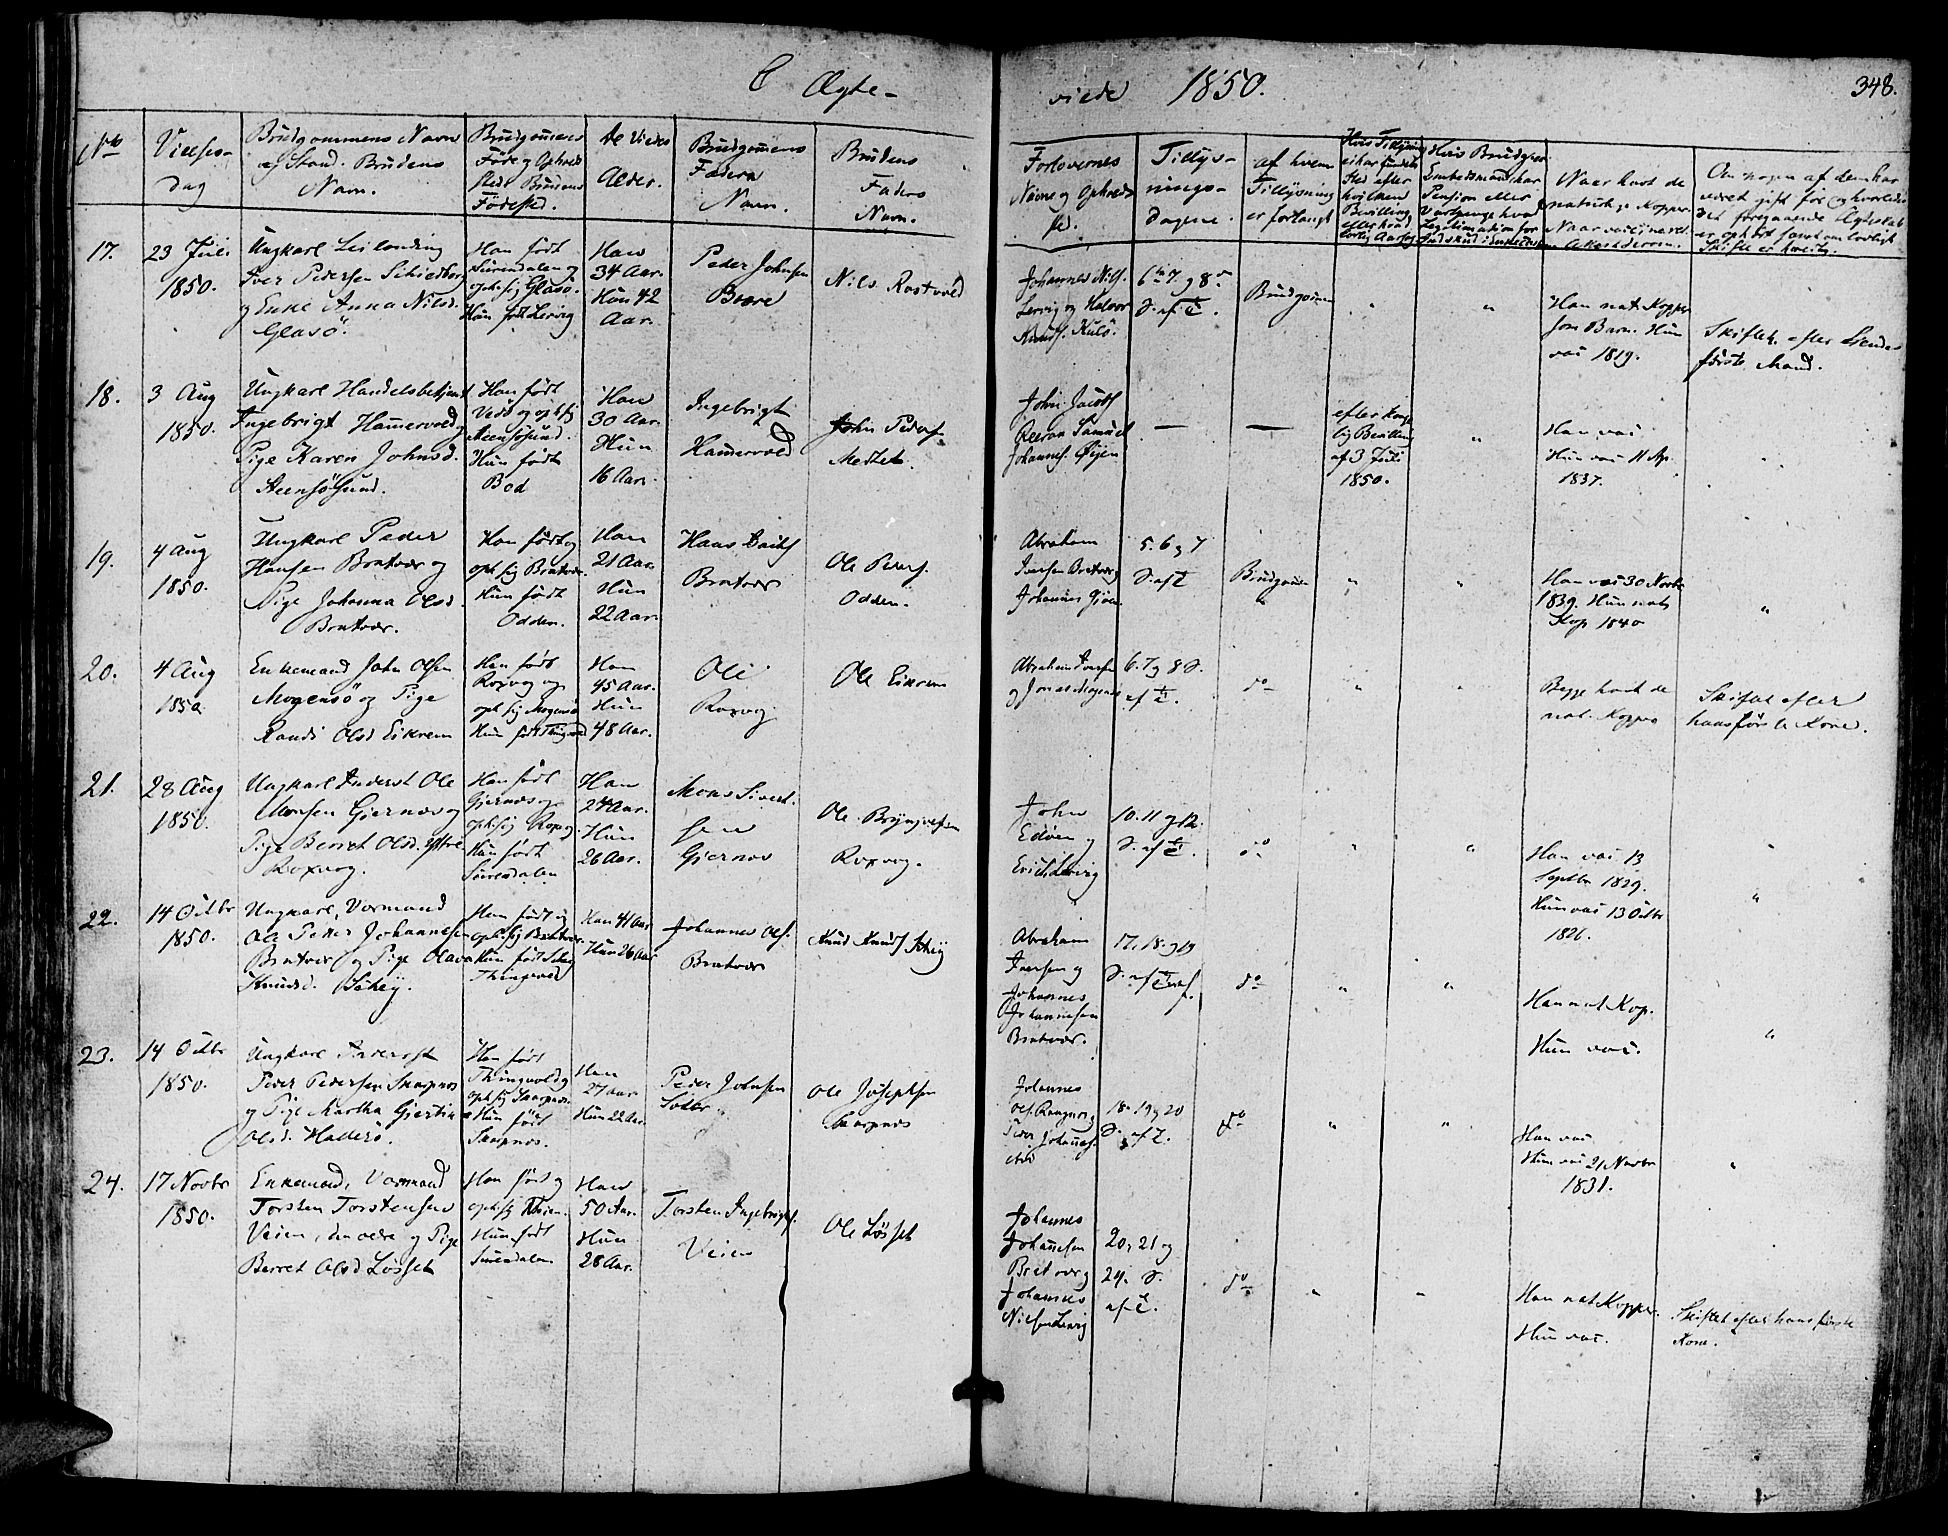 C Ægte-
viede 1850.
348.
No
Vielses-
dag
Brudgommens Navn
og Stand. Brudens
Navn.
Brudgomens
Føde og Ophold
sted. Brudens
Fødested.
De Viedes
Alder.
Brudgomens
Faders
Navn.
Brudens
Faders
Navn.
Forlovernes
Navne og Opholds
sted.
Tillys-
nings-
dagene.
af hvem
Tillysning
er forlangt
Hvis Tillysning
ei har fundet
Sted efter
hvilken
Bevilling
eller hvad
lovlig Aarsag
Hvis Brudgom
Embedsmand har
Pension eller
hvad
Legitimation for
Naar havt de
naturlige Kopper
Naar vaccineret
Attest derom.
Om nogen af dem har
været gift før og hvorledes
det foregaaende Ægteskab
er ophørt samt om lovligt
Skifte er
17.
23 Juli
1850.
Ungkarl Leilænding
Iver Pedersen
og Enke Anna Nilsd.
Glasö.
Han født
Surendalen og
oph. sig Glasö.
Hun født Lervig
Han
34 Aar.
Hun 42
Aar.
Peder Johnsen
Bære
Nils Rostvold
Johannes Nils.
Lervig og Halvor
Knuds. Kulö.
6te 7 og 8de
S. af T.
Brudgomen
"
"
Han nat. Kopper
som Barn. Hun
vac 1819.
Skifte efter hendes
første Mand.
18.
3 Aug
1850.
Ungkarl Handelsbetjent
Ingebrigt Hamervold og
Pige Karen Johnsd.
Steensösund.
Han født
Veöe og oph. sig
Steensösund.
Hun født
Bod
Han
30 Aar.
Hun
16 Aar.
Ingebrigt
Hamervold
John Peders.
Mestet.
John Jacobs
Samuel
Johannes. Öijen
—
—
efter konge
lig Bevilling
af 3 Juli
1850.
"
Han vac
Hun vac 11 Ap.
1837.
"
19.
4 Aug
1850.
Ungkarl Peder
Hansen Bratvær og
Pige Johanna Olsd.
Bratvær.
Han født og
oph. sig Bratvær.
Hun født
Odden.
Han
21 Aar.
Hun
22 Aar.
Hans
Bratvær
Ole Peders.
Odden.
Abraham
Iversen Bratvær og
Johannes
5. 6 og 7
S. af T
Brudgomen
"
"
Han vac 30 Novbr
1839. Hun nat
Kop 1840
"
20.
4 Aug
1850
Enkemand John Olsen
Mogensö og Pige
Randi Olsd Eikrem
Han født
Roxvog og
oph. sig Mogensö
Hun født Tingvold
Han
45 Aar.
Hun
48 Aar.
Ole
Roxvog
Ole Eikrem
Abraham Iversen
og Jonas Mogensö
6. 7 og 8 S.
af T.
do
"
"
Begge havt de
nat. Kopper
Skiftet efter
hans første Kone.
21.
28 Aug
1850.
Ungkarl Inderst Ole
Monsen Gjernes og
Pige Berret Olsd. Yttre
Roxvog.
Han født
Gjernes og
oph. sig Roxvog.
Hun født
Surendalen
Han
24 Aar.
Hun
26 Aar.
Mons Sivert-
sen
Gjernes
Ole Bryngelsen
Roxvog.
John
Edöen og
Erich Lervig
10. 11 og 12.
S. af T.
do
"
"
Han vac 13
Septbr 1829.
Hun vac 13 Octbr
1826.
"
22.
14 Octbr
1850.
Ungkarl, Vormand
Ole Peder Johannesen
Bratvær og Pige Olava
Knudsd. Schey.
Han født og
oph. sig Bratvær.
Hun født Schey
Thingvold
Han 41 Aar
Hun 26 Aar
Johannes Ols.
Bratvær
Knud Knuds. Schey
Abraham
Iversen og
Johannes
Johannesen
Bratvær.
17, 18 og 19
S. af T.
do
"
"
Han nat Kop.
Hun vac.
"
23.
14 Octbr
1850.
Ungkarl Inderst
Peder Pedersen Skarpnes
og Pige Martha Gjertine
Olsd. Hallersö.
Han født
Thingvold og
oph. sig Skarpnes.
Hun født
Skarpnes.
Han
27 Aar
Hun 22 Aar.
Peder Johnsen
Ole Josephsen
Skarpnes
Johannes
Ols. Ramsnes og
Peder Johannes.
18. 19 og 20
S. af T.
do
"
"
Han vac
Hun vac 21 Novbr
1831.
"
24.
17 Novbr
1850.
Enkemand, Vormand
Torsten Torstensen
Veien, den ældre og Pige
Berret Olsd Løsset
Han født og
oph. sig Veien.
Hun født
Surendalen
Han
50 Aar.
Hun
28 Aar.
Torsten Ingebrigts.
Veien
Ole Løsset
Johannes
Johannesen
Bratvær og
Johannes
Nilsen Lervig
20, 21 og
24. S.
af T.
do
"
"
Han nat Kopper.
Hun vac.
Skiftet efter hans første
Kone.